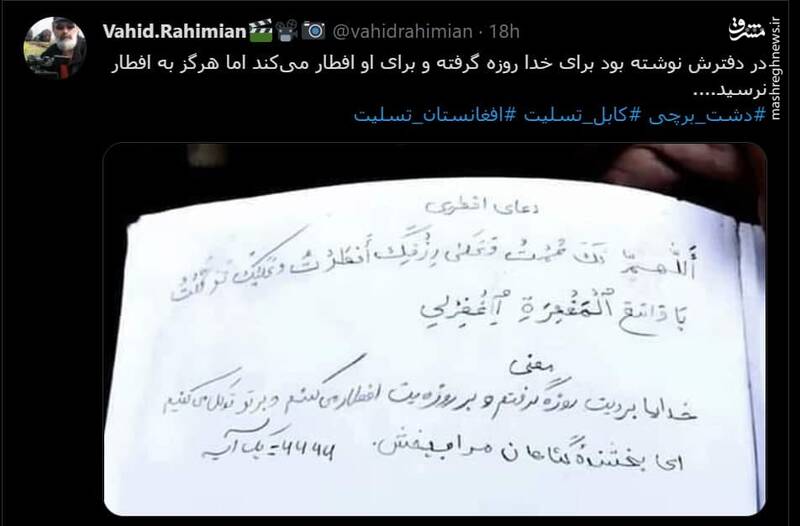 Vahid.Rahimian @vahidrahimian · 18h
مشرق
mashreghnews.ir
در دفترش نوشته بود برای خدا روزه گرفته و برای او افطار می‌کند اما هرگز به افطار
نرسید....
#دشت_برچی #کابل_تسلیت #افغانستان_تسلیت
دعای افطری
أللهم لك صمت وعلى رزقك أفطرت وعليك توكلت
یا واسع المغفرة إغفرلي
معنی
خدایا برایت روزه گرفتم و بر روزه‌یت افطار می‌کنم و بر تو توکل می‌کنیم
ای بخشندهٔ گناهان مرا ببخش.